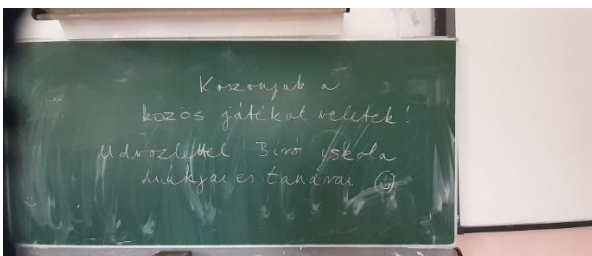 Koszonjuk a
közös játékot veletek!
Udvozlettel Biró iskola
diákjai és tanárai